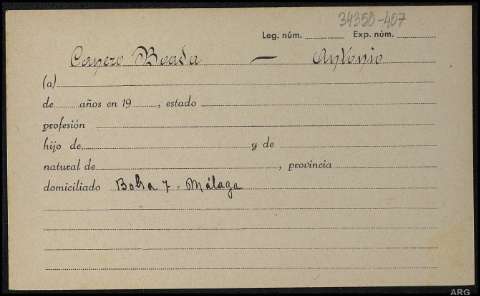 34350-407
Leg. núm. Exp. núm.
Boada — Antonio
(a)
de años en 19 , estado
profesión
hijo de y de
natural de , provincia
domiciliado Bolsa 7 - Málaga
ARG